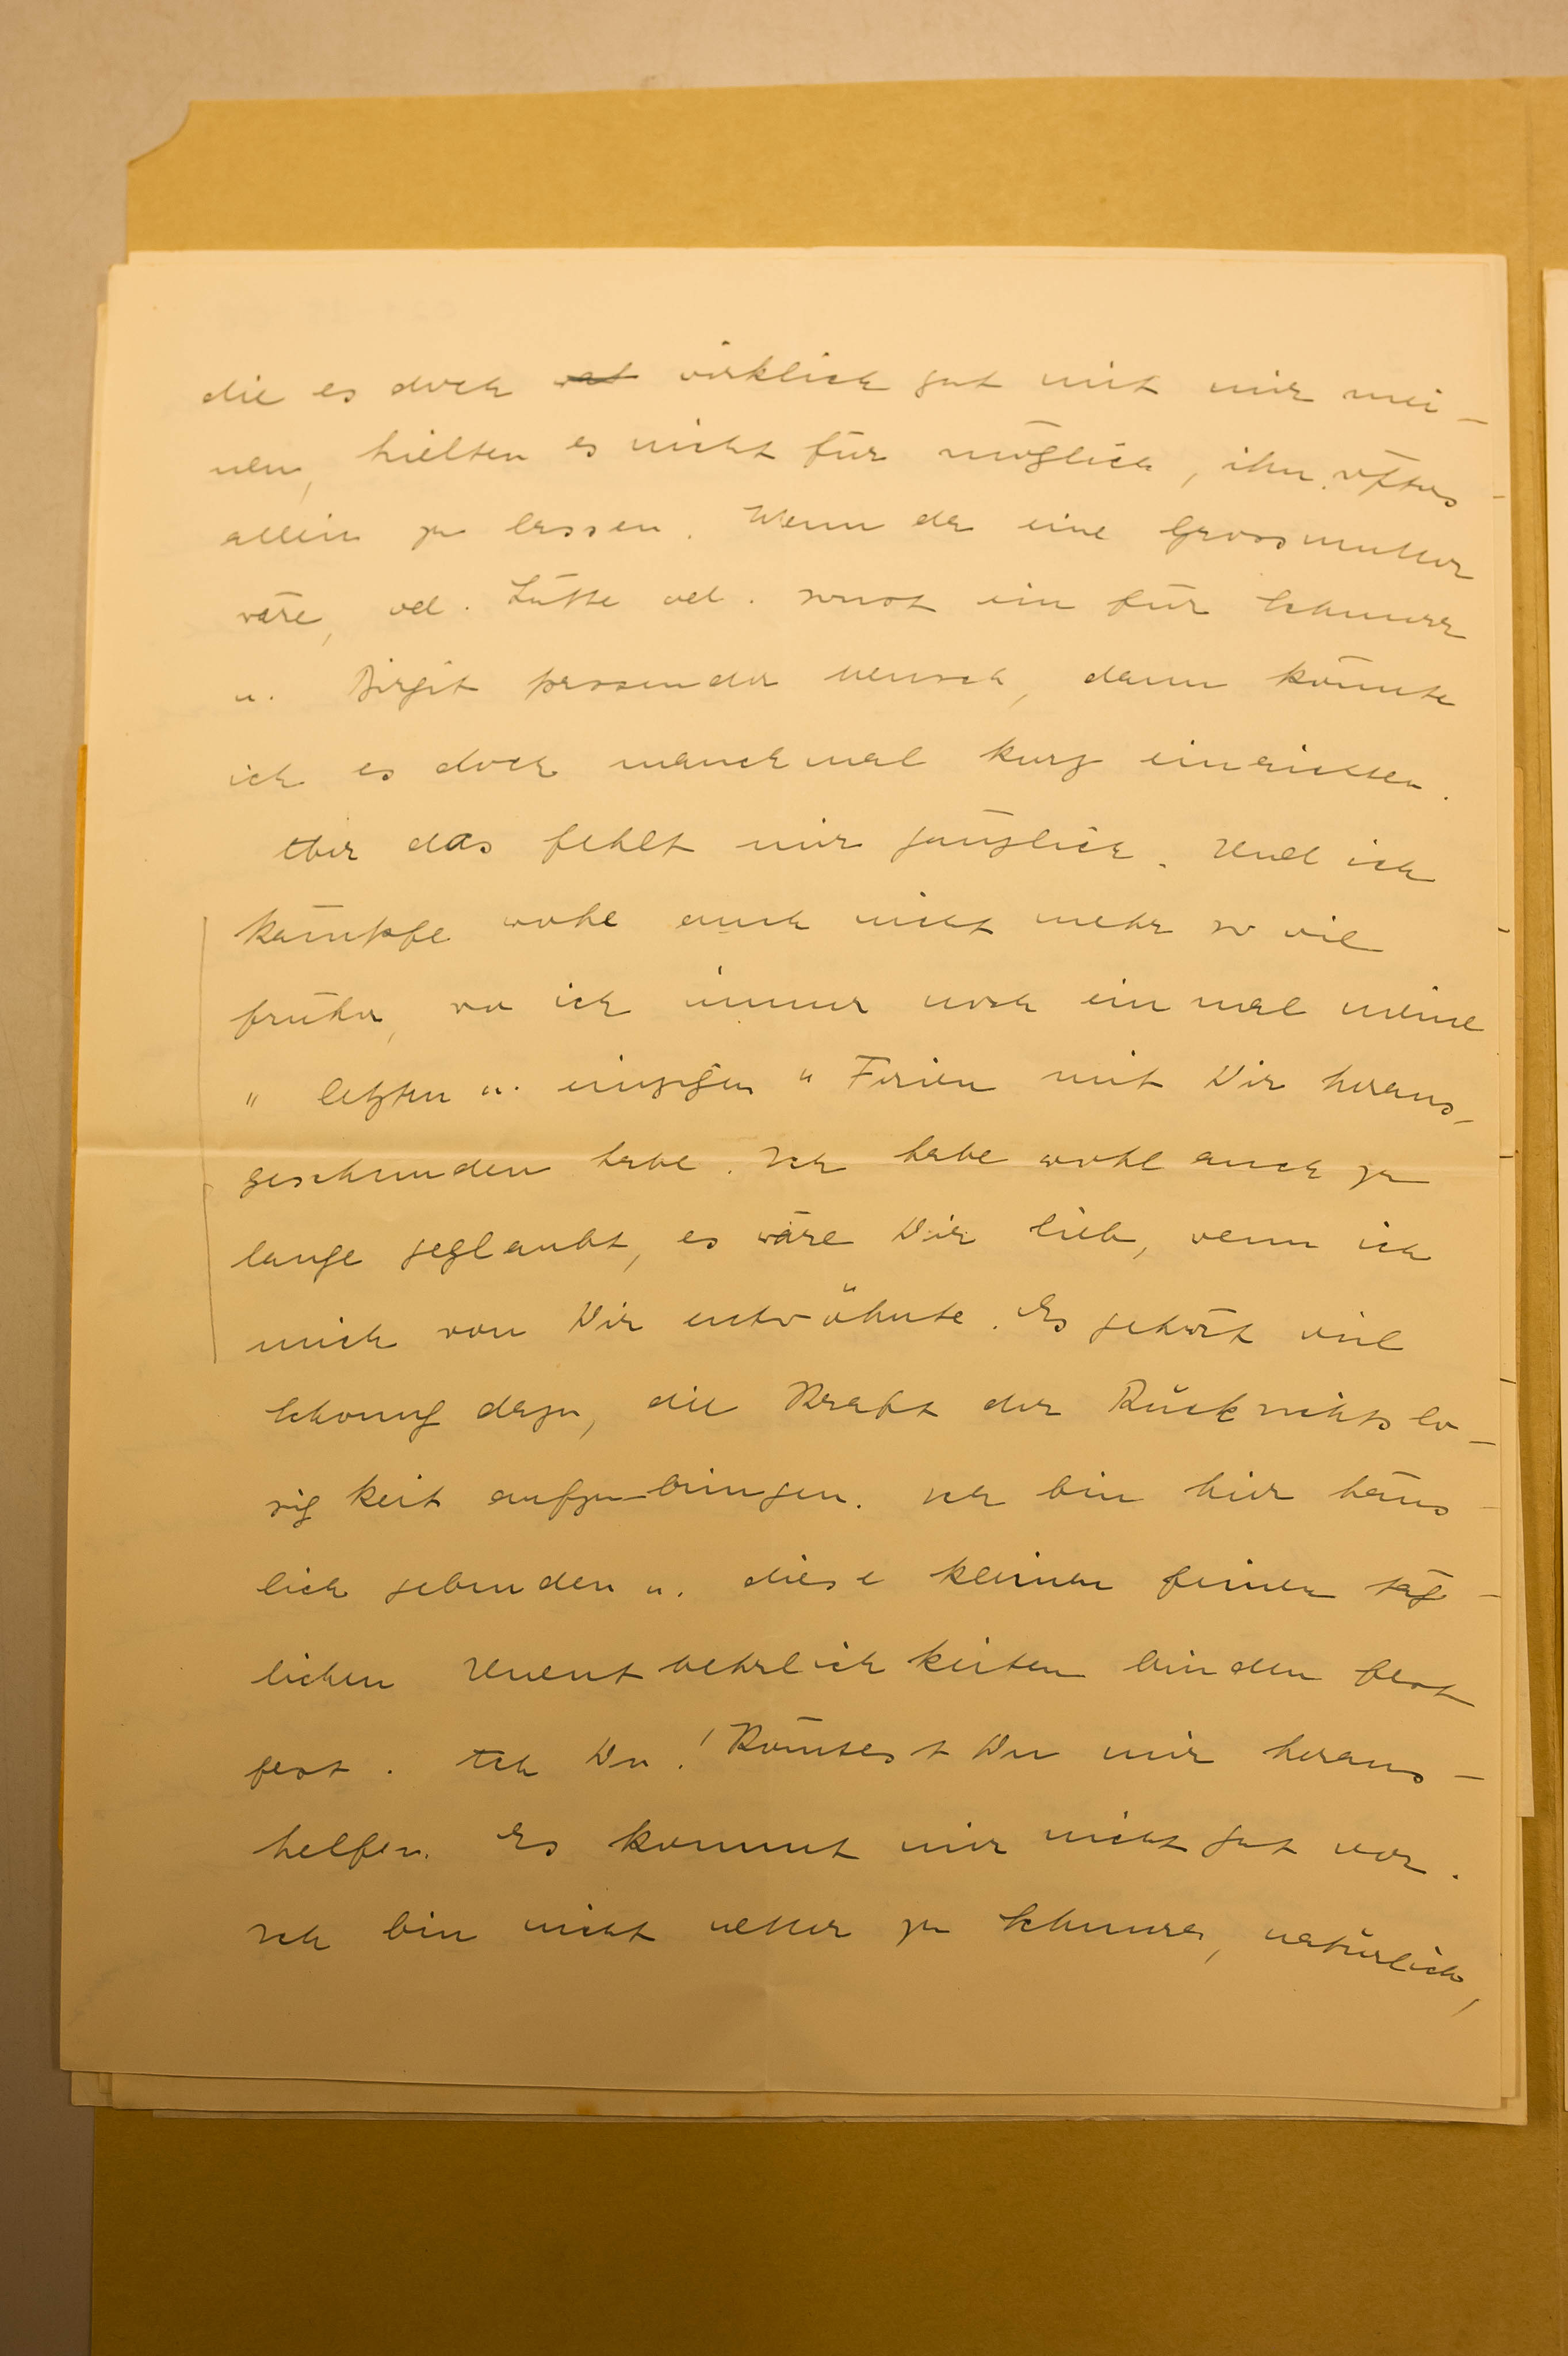 die es doch wirklich gut mit mir mei-
nen, hielten es nicht für möglich, ihn öfters
allein zu lassen. Wenn da eine Grossmutter
wäre, od. Lütte od. sonst ein für Schnurr
u. Birgit passender Mensch, dann könnte
ich es doch manchmal kurz einrichten.
Aber das fehlt mir gänzlich. Und ich
kämpfe wohl auch nicht mehr so viel
früher, wo ich immer noch ein mal meine
"letzten u. einzigen" Ferien mit Dir heraus-
geschunden habe. Ich habe wohl auch zu
lange geglaubt, es wäre Dir lieb, wenn ich
mich von Dir entwöhnte. Es gehört viel
Schwung dazu, die Kraft der Rücksichtslo-
sigkeit aufzubringen. Ich bin hier häus-
lich gebunden u. diese kleinen feinen täg-
lichen Unentbehrlichkeiten binden fest
fest. Ach Du! Könntest Du mir heraus-
helfen. Es kommt mir nicht gut vor.
Ich bin nicht netter zu Schnurr, natürlich,